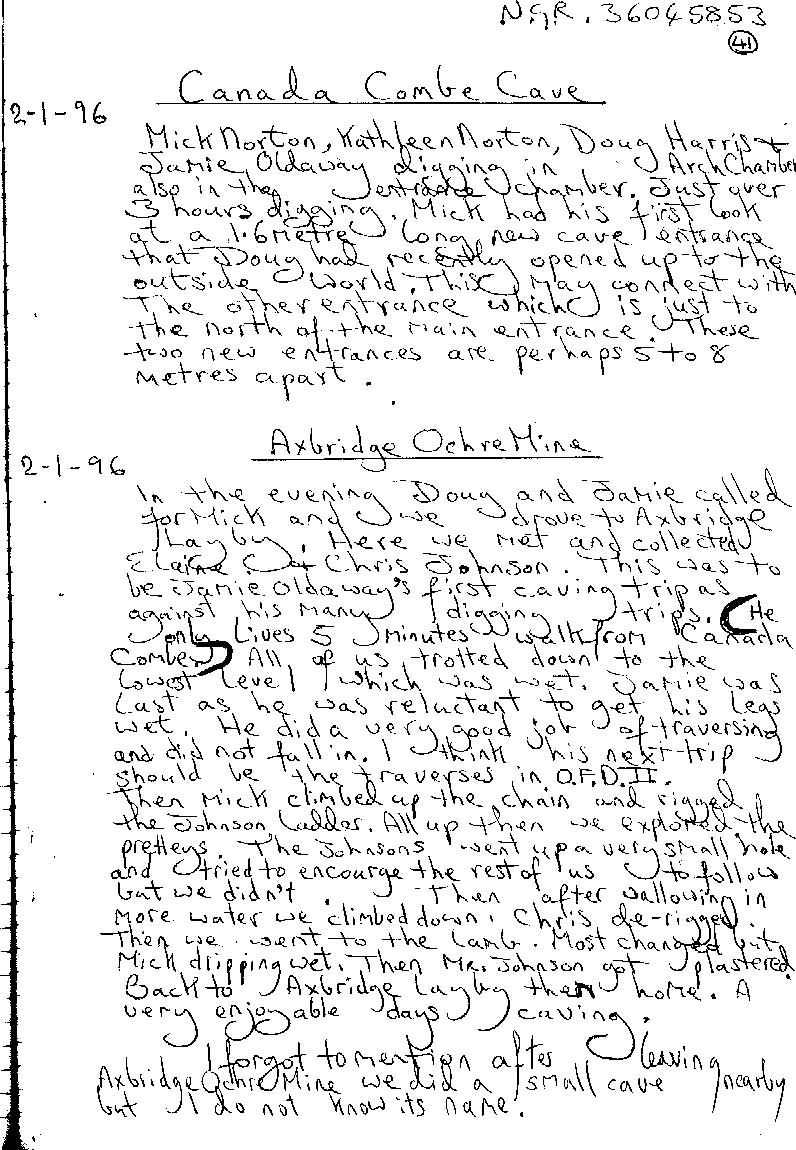 N.G.R. 36045853
41
Canada Combe Cave
2-1-96
Mick Norton, Kathleen Norton, Doug Harris +
Jamie Oldaway digging in Arch Chamber
also in the entrance chamber. Just over
3 hours digging. Mick had his first look
at a 1.6 metre long new cave entrance
that Doug had recently opened up to the
outside World. This May connect with
The other entrance which is just to
the north of the main entrance. These
two new entrances are perhaps 5 to 8
Metres apart.
Axbridge Ochre Mine
2-1-96
In the evening Doug and Jamie called
for Mick and I we drove to Axbridge
Layby. Here we met and collected
Elaine & Chris Johnson. This was to
be Jamie Oldaway's first caving trip as
against his many digging trips. (He
only Lives 5 minutes walk from Canada
Combe) All of us trotted down to the
Lowest level which was wet. Jamie was
Last as he was reluctant to get his Legs
wet. He did a very good job of traversing
and did not fall in. I think his next trip
should be the traverses in O.F.D. II.
Then Mick climbed up the chain and rigged
the Johnson Ladder. All up then we explored the
pretteys. The Johnsons went up a very small hole
and tried to encourge the rest of us to follow
but we didn't. Then after wallowing in
More water we climbed down. Chris de-rigged.
Then we went to the Lamb. Most changed but
Mick dripping wet. Then Mr. Johnson got plastered.
Back to Axbridge Layby then home. A
very enjoyable days caving.
I forgot to mention after leaving
Axbridge Ochre Mine we did a small cave nearby
but I do not know its name.